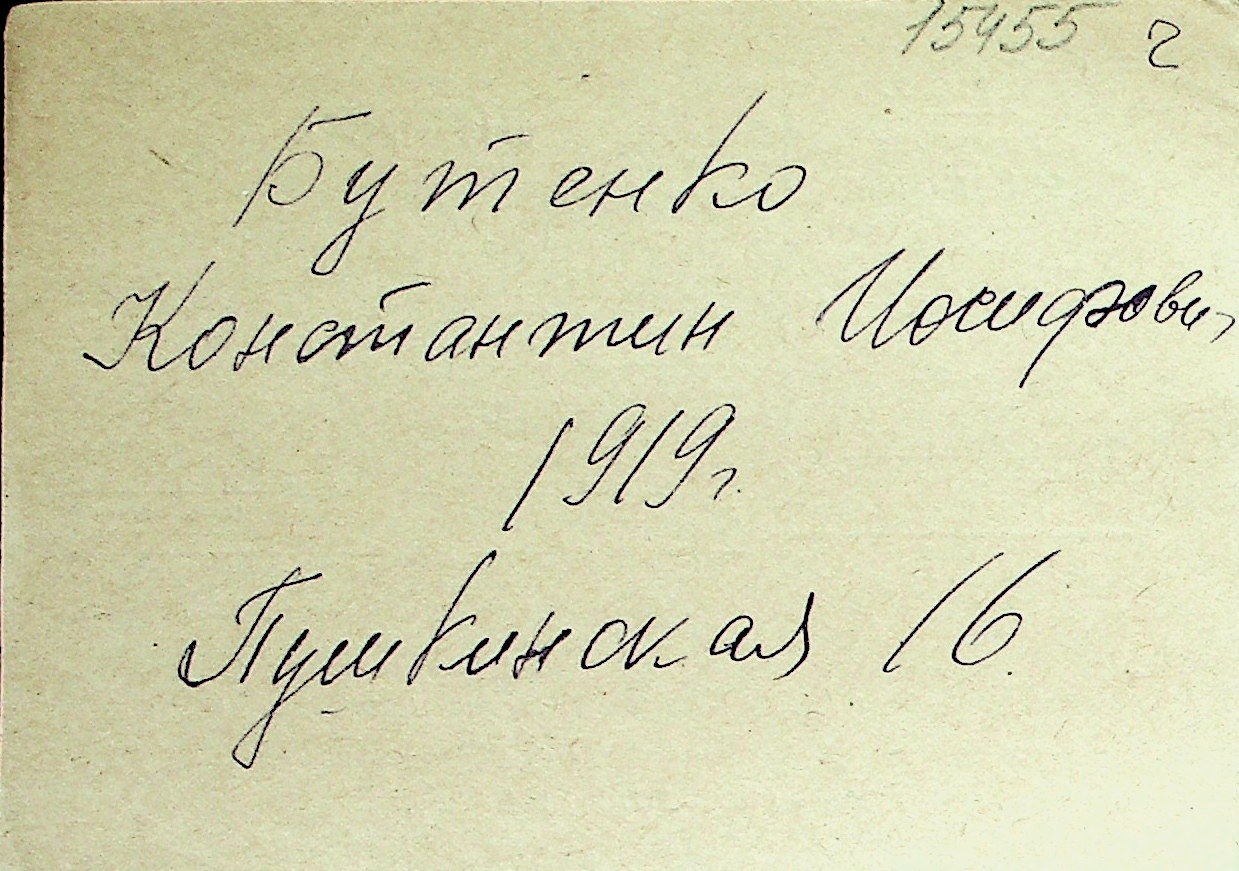 15455 2
Бутенко
Константин Иосифович
1919г.
Пушкинская 16